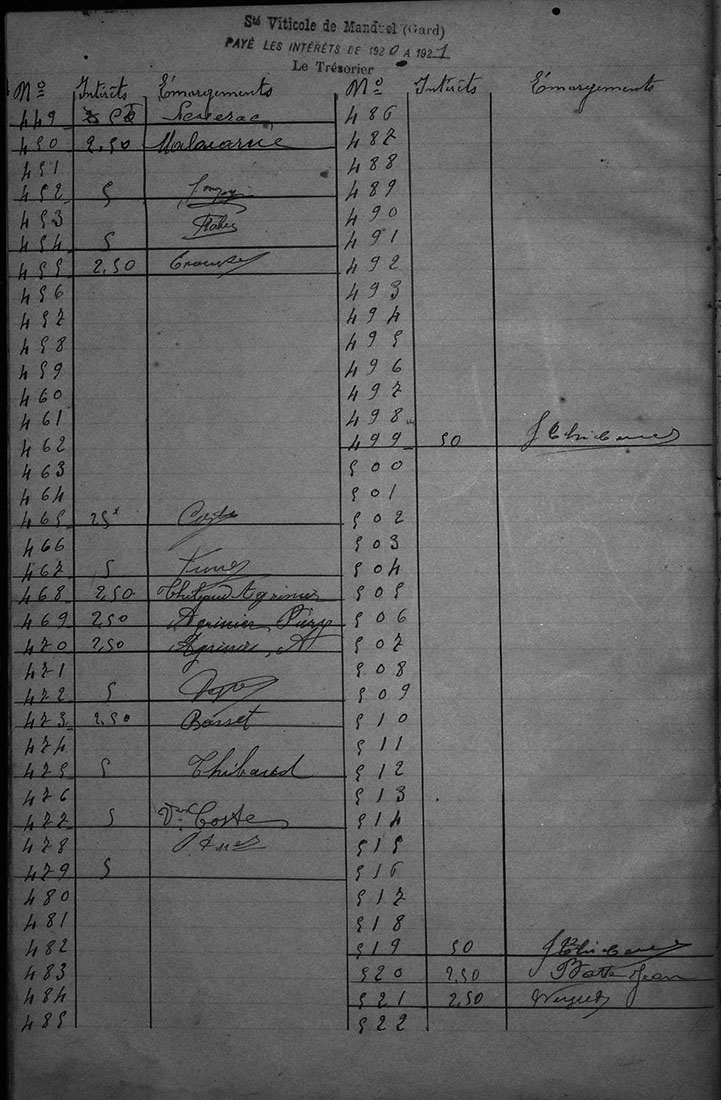 Sté Viticole de Manduel (Gard)
PAYÉ LES INTÉRÊTS DE 1920 A 1921
Le Trésorier
No Intérêts Émargements
449
450 2,50 Malacarne
451
452 5
453
454 5
455 2,50
456
457
458
459
460
461
462
463
464
465 25
466
467 5
468 2,50 Agrinier
469 2,50 Agrinier
470 2,50 Agrinier, A
471
472 5
473 2,50 Bosset
474
475 5 Thibaud
476
477 5 Coste
478
479 5
480
481
482
483
484
485
No Intérêts Émargements
486
487
488
489
490
491
492
493
494
495
496
497
498
499 50
500
501
502
503
504
505
506
507
508
509
510
511
512
513
514
515
516
517
518
519 50
520 2,50 Jean
521 2,50
522